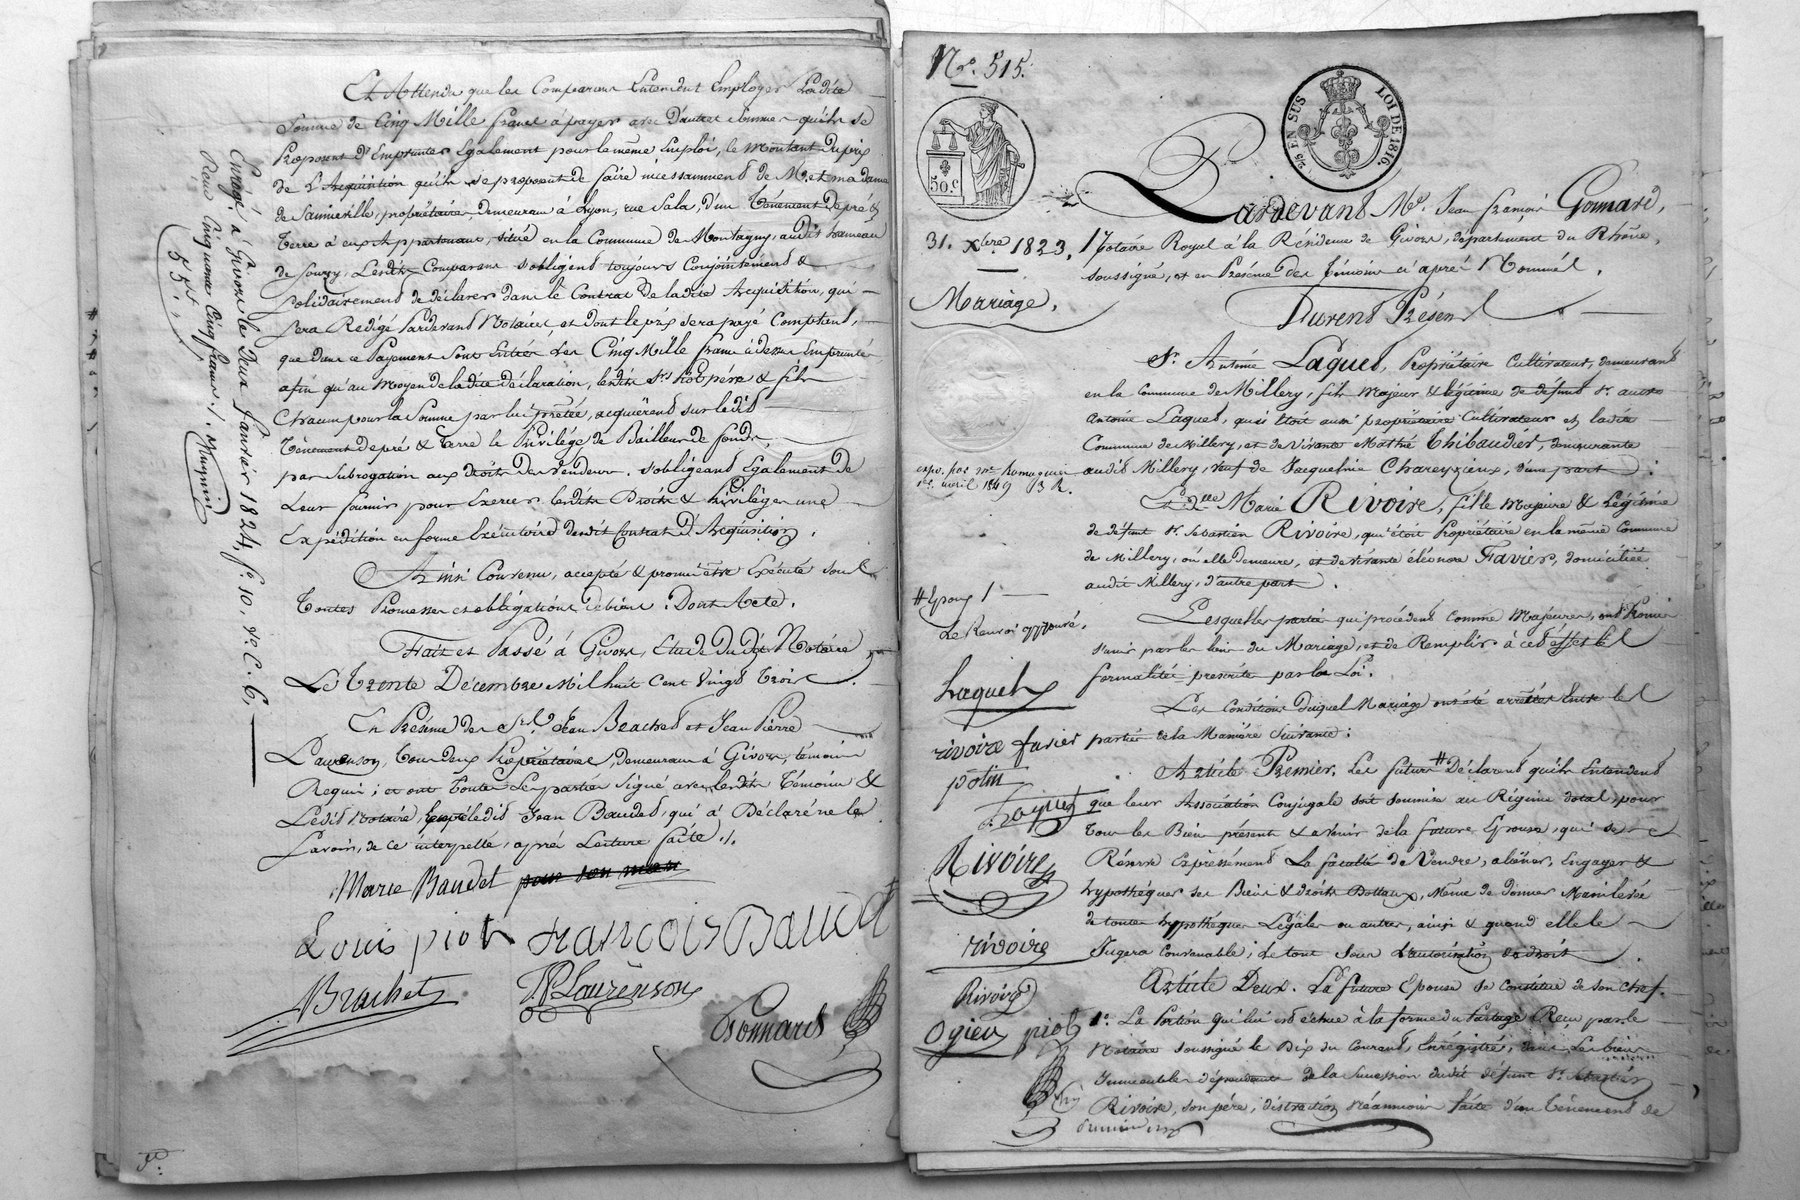 Et Attendu que les Comparans Entendent Employer Ladite
Somme de Cinq Mille francs à payer avec D'autres sommes qu'ils se
Proposent D'Emprunter Egalement pour le même Emploi, le Montant du prix
de L'Acquisition qu'ils se proposent de faire incessamment de Mr. et madame
de Sainneville, propriétaires, demeurans à Lyon, rue Sala, d'un Tènement de pré &
Terre à eux Appartenans, situé en la Commune de Montagny, audit hameau
de Sourzy, Lesdits Comparans s'obligent toujours Conjointement &
solidairement de déclarer dans le Contrat de ladite Acquisition, qui
sera Rédigé Pardevant Notaires, et dont le prix sera payé Comptant,
que dans ce Payement sont Entrés Les Cinq Mille francs ci dessus Empruntés
afin qu'au Moyen de ladite déclaration, lesdits Srs. Piot père & fils
Chacun pour la Somme par lui prêtée, acquièrent sur ledit
Tènement de pré & Terre le Privilège de Bailleur de fonds,
par Subrogation aux droits des Vendeurs. s'obligeant Egalement de
Leur fournir pour Exercer lesdits Droits & Privilèges une
Expédition en forme Exécutoire dudit Contrat d'Acquisition.
Ainsi Convenu, accepté & promis être Exécuté sous
Toutes Promesses et obligations de biens. Dont Acte.
Fait et Passé à Givors, Etude dudit Notaire,
Le Trente Décembre Mil huit Cent Vingt Trois.
En Présence des Srs. Jean Brachet et Jean Pierre
Laurenson, Tous deux Propriétaires, demeurans à Givors, témoins
Requis; et ont Toutes Les parties Signé avec lesdits Témoins &
Ledit Notaire, Excepté ledit Jean Baudet, qui a Déclaré ne le
Savoir, de ce interpellé, après Lecture faite ./.
Marie Baudet pour son mari
Louis piot françois Baudet
Brachet JPLaurenson
Gonnard
Enregé. à Givors le Deux Janvier 1824, fo. 10. Vo. C. 6,
Reçu Cinquante Cinq francs ./.
55f.
No. 515.
2/5 EN SUS LOI DE 1816.
50.c
31. Xbre 1823.
Mariage,
Pardevant Me. Jean François Gonnard,
Notaire Royal à la Résidence de Givors, département du Rhône,
soussigné, et en Présence des témoins ci après Nommés.
Furent Présens
Sr. Antoine Laquet, Propriétaire Cultivateur, demeurant
en la Commune de Millery, fils Majeur & légitime de défunt Sr. autre
Antoine Laquet, qui étoit aussi propriétaire Cultivateur et ladite
Commune de Millery, et de Vivante Mathé Thibaudier, demeurante
audit Millery, veuf de Jacqueline Chareyzieux, d'une part:
Et Dlle. Marie Rivoire, fille Majeure & Légitime
de défunt Sr. Sébastien Rivoire, qui étoit Propriétaire en la même Commune
de Millery, où elle demeure, et de Vivante éléonore Favier, domiciliée
audit Millery, d'autre part.
Lesquelles parties qui procèdent comme Majeures, ont Promis
s'unir par les liens du Mariage, et de Remplir à cet effet les
formalités prescrites par la Loi.
Les Conditions duquel Mariage ont été arrêtées Entre les
parties de la Manière Suivante:
Article Premier. Les futurs # Déclarent qu'ils Entendent
que leur Association Conjugale soit soumise au Régime dotal, pour
Tous les Biens présents & avenir de la future Epouse, qui se
Réserve Expressément La faculté de Vendre, aliéner, Engager &
hypothéquer ses Biens & droits Dotaux, Même de donner Mainlevée
de toutes hypothèques Légales ou autres, ainsi & quand elle le
Jugera Convenable; Le tout sous L'autorisation de droit.
Article Deux. La future Epouse se constitue de son chef.
1o. La Portion qui lui est échue à la forme du Partage Reçu par le
Notaire soussigné le Dix du Courant, Enrégistré, dans Les biens
Immeubles dépendants de la Succession dudit défunt Sr. Sébastien
Rivoire, son père, distraction Néanmoins faite d'un Tènement de
expo. par me
1er. avril 1849
# Epoux /
Le Renvoi approuvé.
Laquet
rivoire favier
potin
Laquet
Rivoire
rivoire
Rivoire
Ogier piot